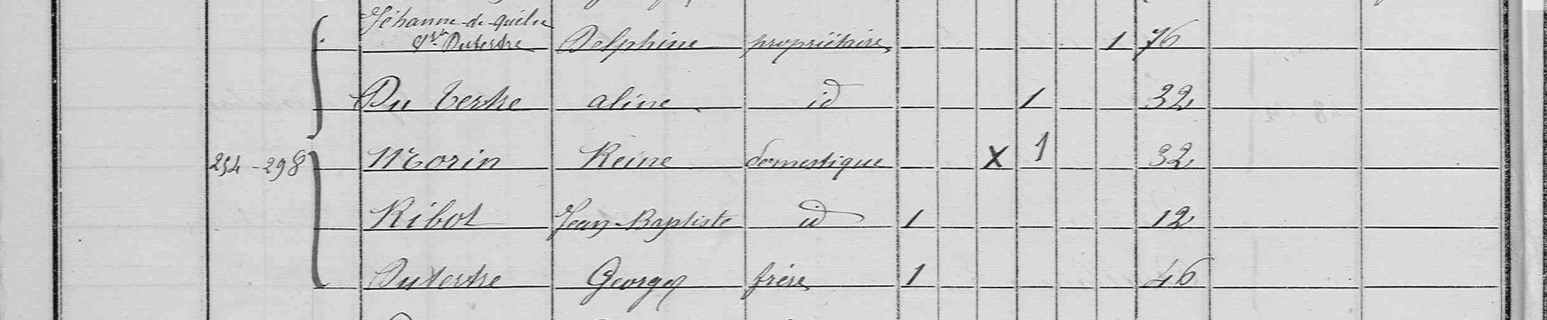 Jéhanne-de-quélen
Vve Dutertre Delphine propriétaire 1 76
Du tertre aline id 1 32
254-298 Morin Reine domestique X 1 32
Ribot Jean-Baptiste id 1 12
Dutertre Georges frère 1 46